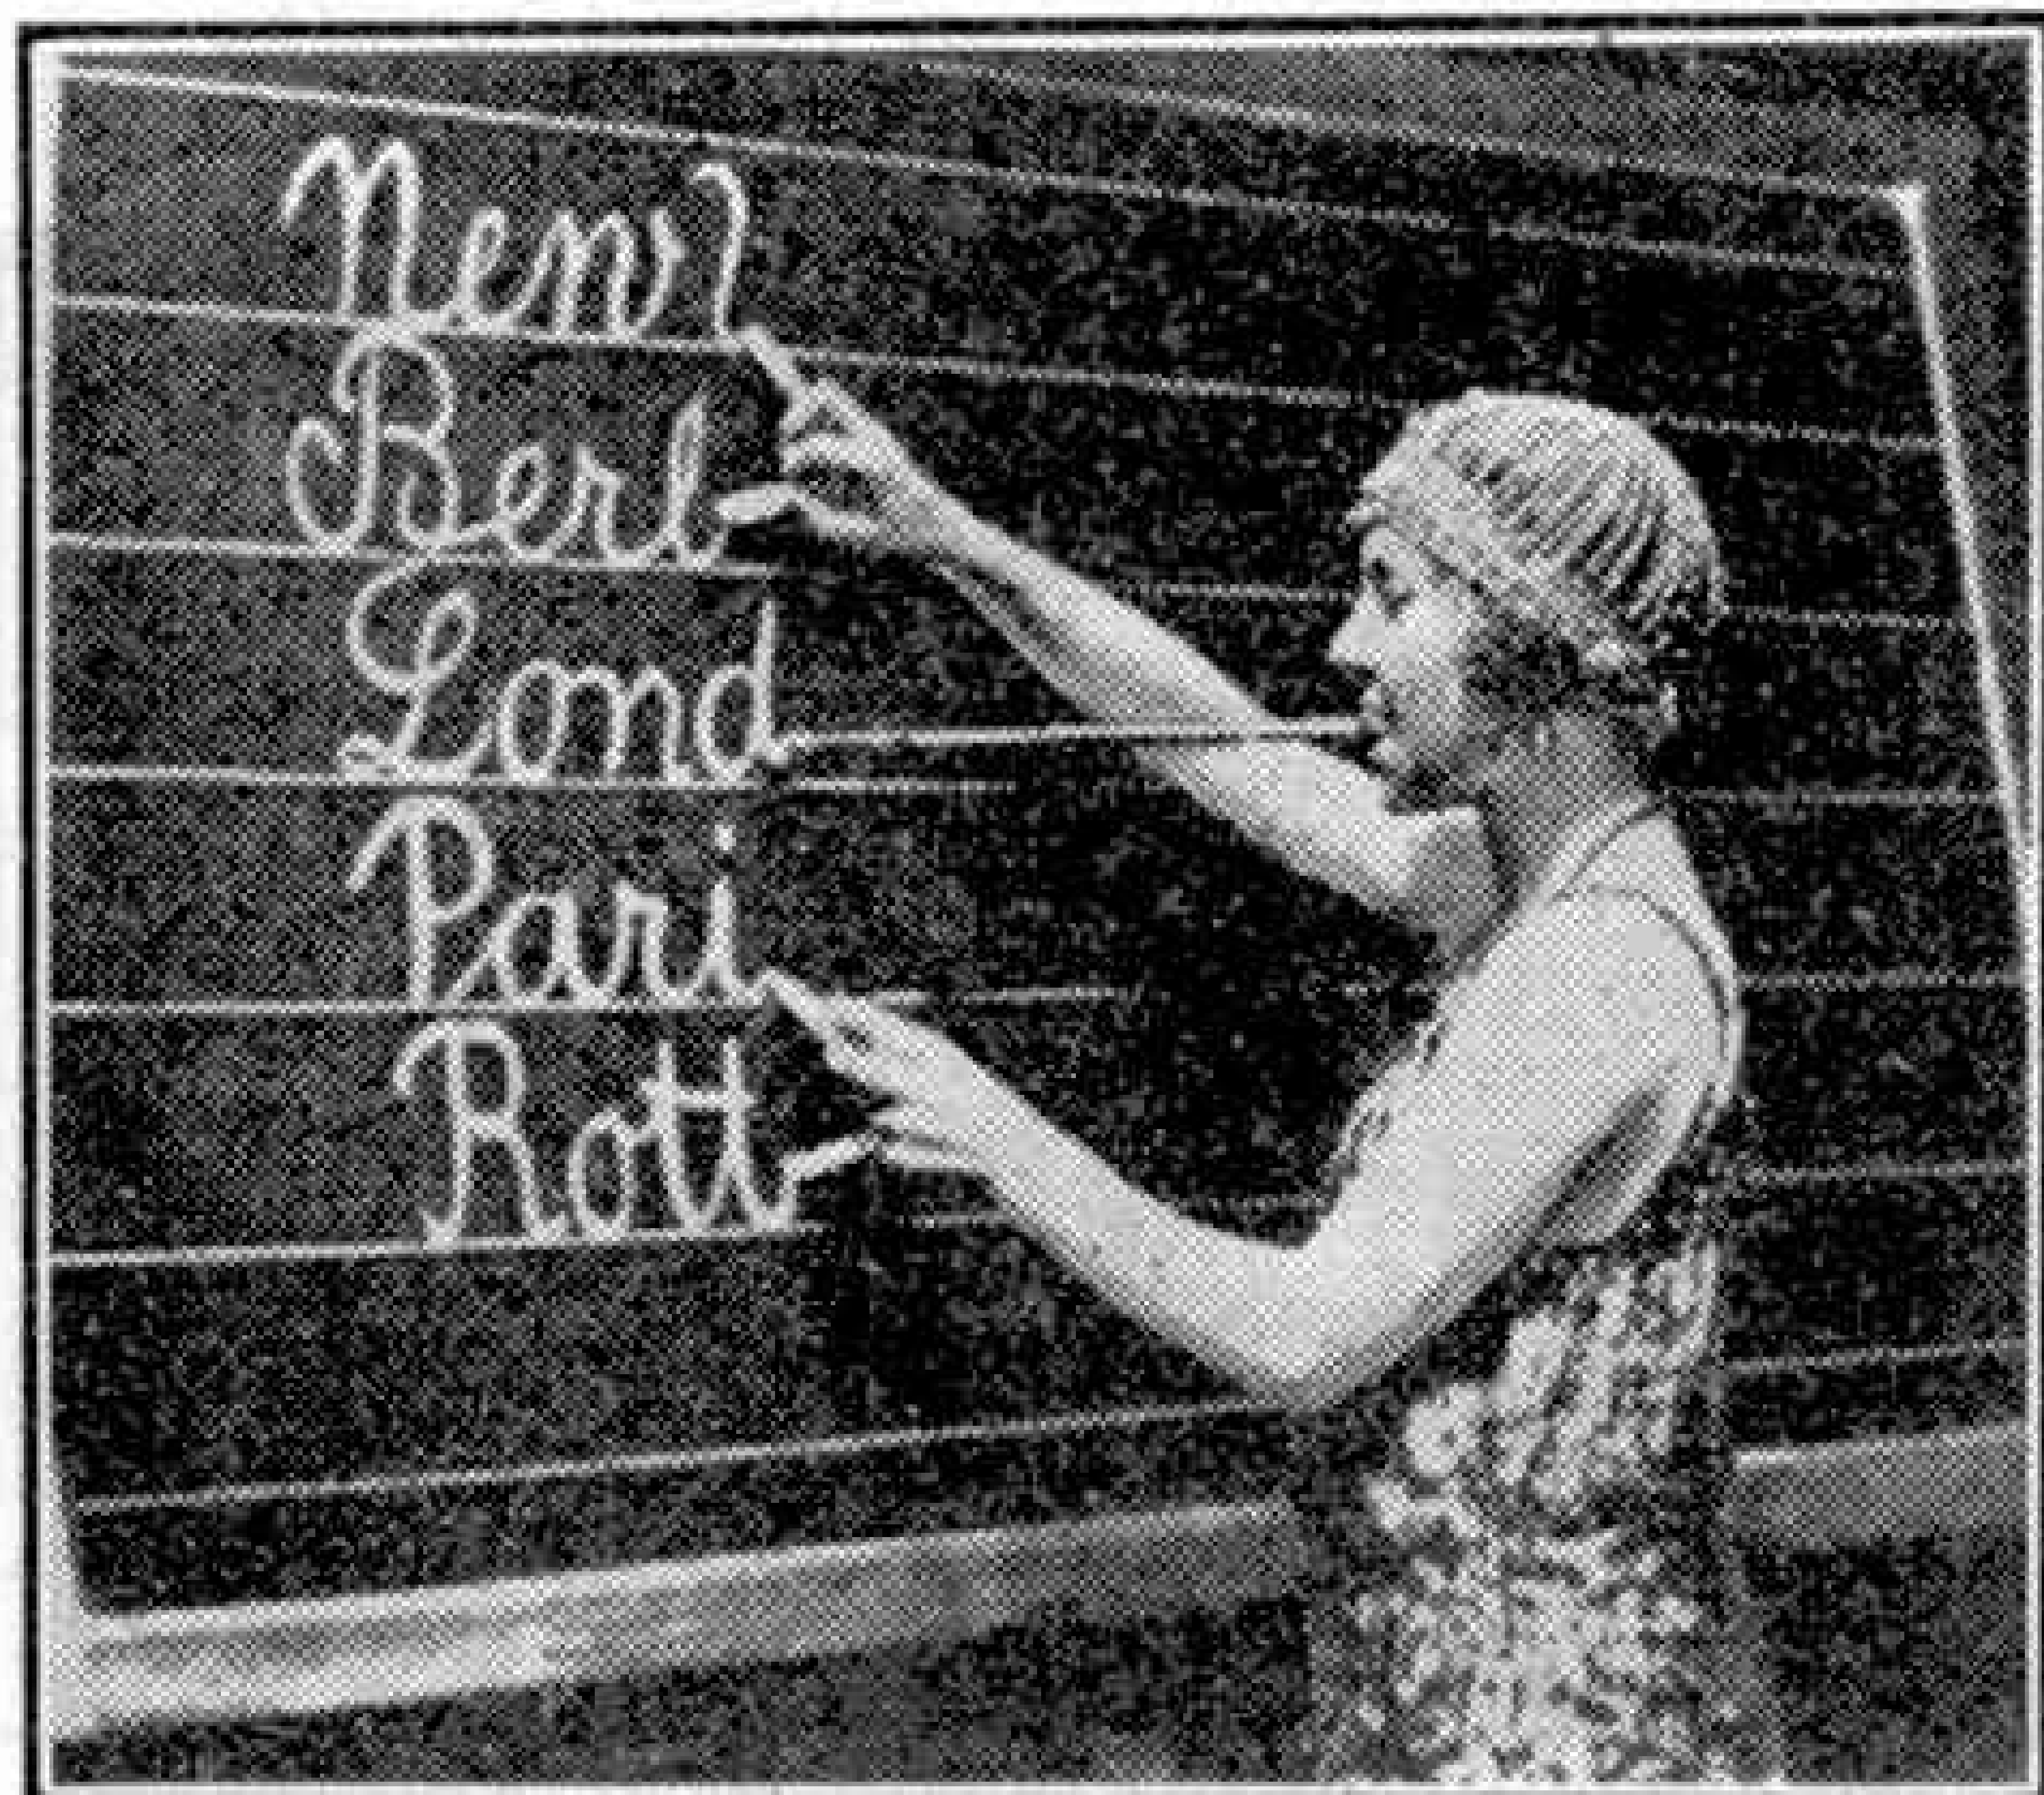 New Y
Berl
Lond
Pari
Rott